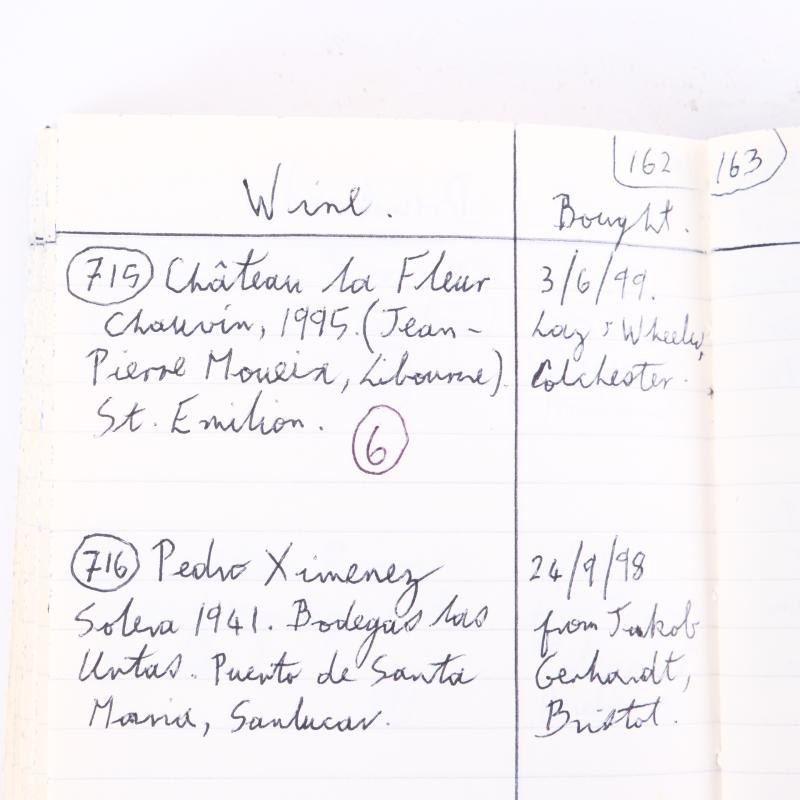 162
163
Wine.
Bought.
715 Château la Fleur
Chauvin, 1995. (Jean-
Pierre Moueix, Libourne).
St. Emilion.
6
3/6/99.
Lay & Wheeler,
Colchester.
716 Pedro Ximenez
Solera 1941. Bodegas las
Urtas. Puerto de Santa
Maria, Sanlucar.
24/9/98
from Jakob
Gerhardt,
Bristol.